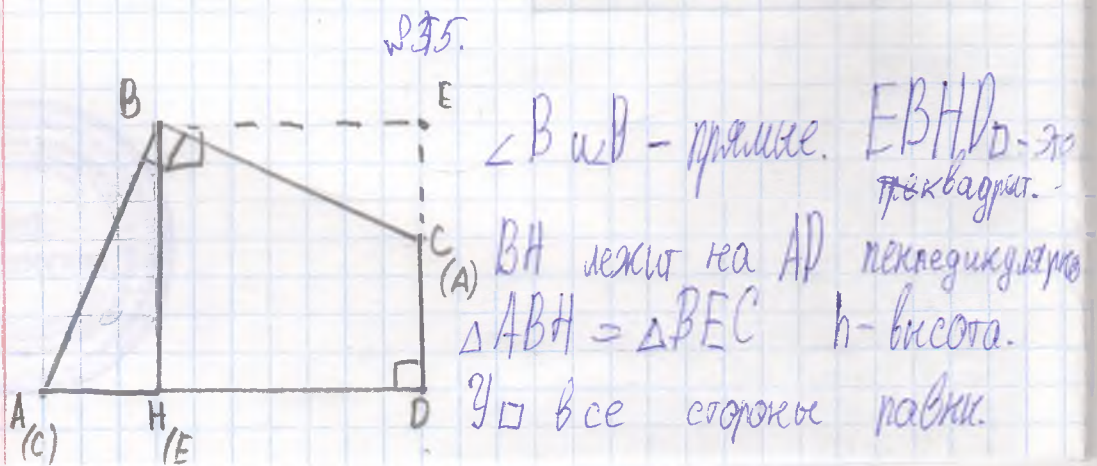 №375.
B
E
∠B и ∠D - прямые. EBHD □ - это
квадрат.
C
(A)
BH лежит на AD пенпедикулярно
△ABH = △BEC h - высота.
A
(C)
H
(E
D
У □ все стороны равны.